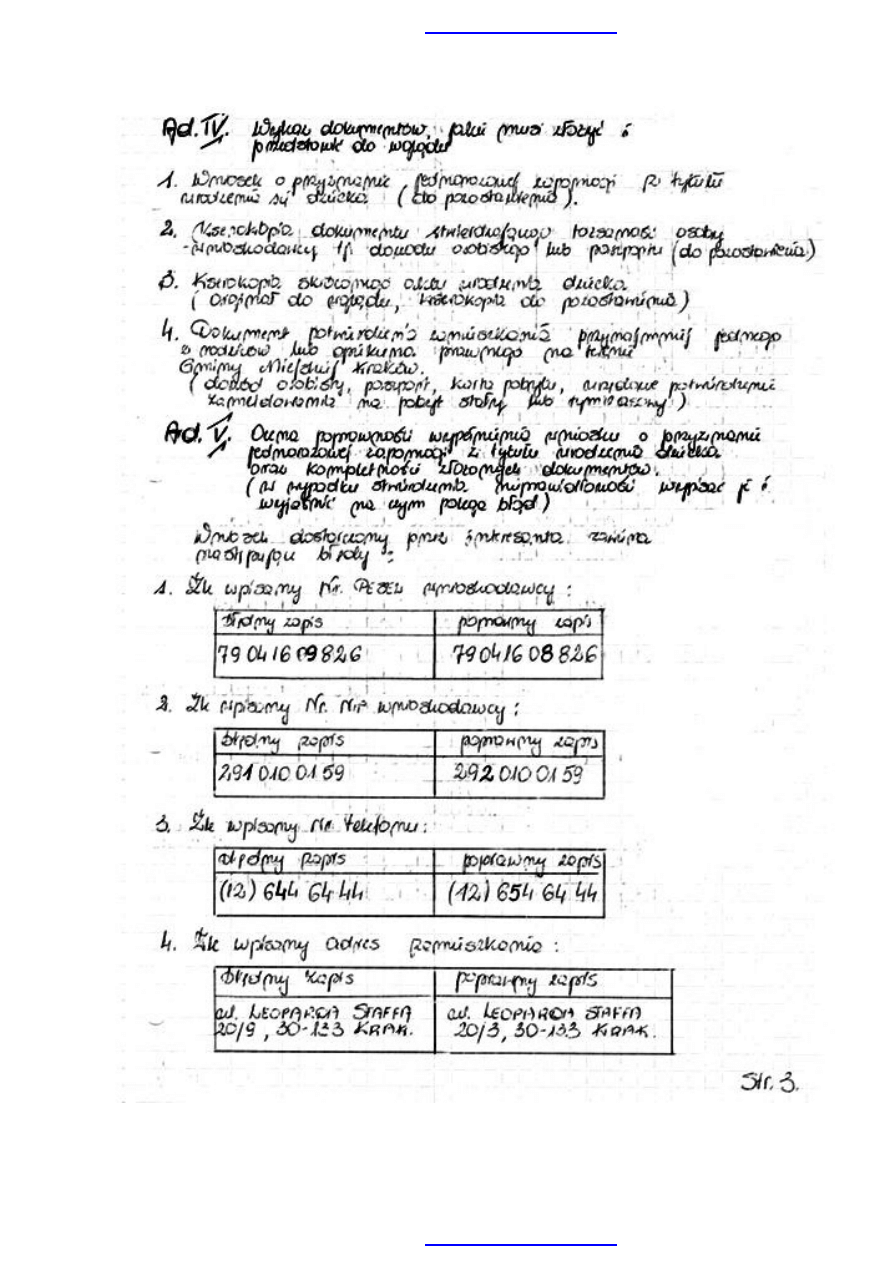 Ad. IV. Wykaz dokumentów, jakie musi złożyć i
przedstawić do wglądu
1. Wniosek o przyznanie jednorazowej zapomogi z tytułu
urodzenia się dziecka (do pozostawienia).
2. Kserokopia dokumentu stwierdzającego tożsamość osoby
-wnioskodawcy tj. dowodu osobistego lub paszportu (do pozostawienia)
3. Kserokopia skróconego aktu urodzenia dziecka
(oryginał do wglądu, kserokopia do pozostawienia)
4. Dokument potwierdzenia zamieszkania przynajmniej jednego
z rodziców lub opiekuna prawnego na terenie
Gminy Miejskiej Kraków.
(dowód osobisty, paszport, karta pobytu, urzędowe potwierdzenie
zameldowania na pobyt stały lub tymczasowy)
Ad. V. Ocena poprawności wypełnienia wniosku o przyznanie
jednorazowej zapomogi z tytułu urodzenia dziecka
oraz kompletności złożonych dokumentów.
(w wypadku stwierdzenia nieprawidłowości wypisać je i
wyjaśnić na czym polega błąd)
Wniosek dostarczony przez interesanta zawiera
następujące błędy:
1. Źle wpisany Nr. PESEL wnioskodawcy:
błędny zapis poprawny zapis
79 04 16 09 826 79 04 16 08 826
2. Źle wpisany Nr. NIP wnioskodawcy:
błędny zapis poprawny zapis
291 010 01 59 292 010 01 59
3. Źle wpisany Nr. telefonu:
błędny zapis poprawny zapis
(12) 644 64 44 (12) 654 64 44
4. Źle wpisany adres zamieszkania:
błędny zapis poprawny zapis
ul. LEOPARDA STAFFA ul. LEOPARDA STAFFA
20/9, 30-133 KRAK. 20/3, 30-133 KRAK.
Str. 3.